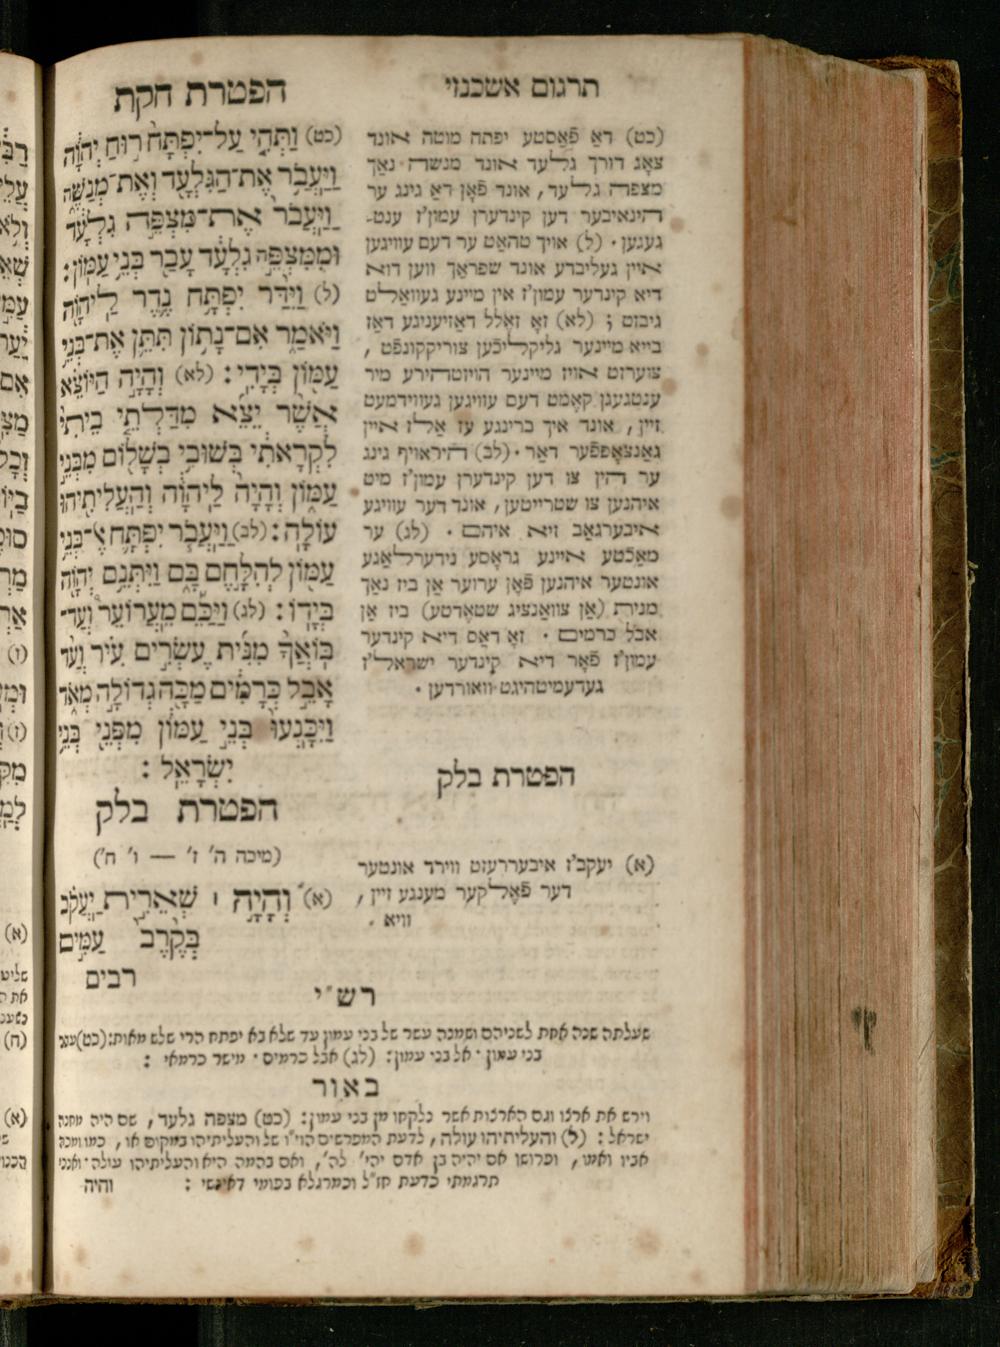 תרגום אשכנזי
(כט) דאַ פֿאַסטע יפתח מוטה אונד
צאָג דורך גלעד אונד מנשה נאָך
מצפה גלעד, אונד פֿאָן דאַ גינג ער
הינאיבער דען קינדערן עמון'ז ענט-
געגען. (ל) אויך טהאַט ער דעם עוויגען
איין געליבדע אונד שפראַך ווען דוא
דיא קינדער עמון'ז אין מיינע געוואַלט
גיבזט ; (לא) זאָ זאָלל דאַזיעניגע דאַז
בייא מיינער גליקליכֿען צוריקקונפֿט ,
צוערזט אויז מיינער הויזטהירע מיר
ענטגעגן קאָמט דעם עוויגען געווידמעט
זיין , אונד איך ברינגע עז אַלז איין
גאַנצאָפּפֿער דאַר. (לב) היראויף גינג
ער הין צו דען קינדערן עמון'ז מיט
איהנען צו שטרייטען, אונד דער עוויגע
איבערגאַב זיא איהם . (לג) ער
מאַכֿטע איינע גראָסע נידערלאַגע
אונטער איהנען פֿאָן ערוער אַן ביז נאָך
מנית (אַן צוואַנציג שטאָדטע) ביז אַן
אבל כרמים . זאָ דאַס דיא קינדער
עמון'ז פֿאָר דיא קינדער ישראל'ז
געדעמיטהיגט וואורדען .
הפטרת בלק
(א) יעקב'ז איבעררעזט ווירד אונטער
דער פֿאָלקער מענגע זיין ,
וויא .
הפטרת חקת
(כט) וַתְּהִי עַל־יִפְתָּח רוּחַ יְהוָה
וַיַּעֲבֹר אֶת־הַגִּלְעָד וְאֶת־מְנַשֶּׁה
וַיַּעֲבֹר אֶת־מִצְפֵּה גִלְעָד
וּמִמִּצְפֵּה גִלְעָד עָבַר בְּנֵי עַמּוֹן:
(ל) וַיִּדַּר יִפְתָּח נֶדֶר לַיהוָה
וַיֹּאמַר אִם־נָתוֹן תִּתֵּן אֶת־בְּנֵי
עַמּוֹן בְּיָדִי: (לא) וְהָיָה הַיּוֹצֵא
אֲשֶׁר יֵצֵא מִדַּלְתֵי בֵיתִי
לִקְרָאתִי בְּשׁוּבִי בְשָׁלוֹם מִבְּנֵי
עַמּוֹן וְהָיָה לַיהוָה וְהַעֲלִיתִיהוּ
עוֹלָה: (לב) וַיַּעֲבֹר יִפְתָּח אֶ־בְּנֵי
עַמּוֹן לְהִלָּחֶם בָּם וַיִּתְּנֵם יְהוָה
בְּיָדוֹ: (לג) וַיַּכֵּם מֵעֲרוֹעֵר וְעַד־
בּוֹאֲךָ מִנִּית עֶשְׂרִים עִיר וְעַד
אָבֵל כְּרָמִים מַכָּה גְּדוֹלָה מְאֹד
וַיִּכָּנְעוּ בְּנֵי עַמּוֹן מִפְּנֵי בְּנֵי
יִשְׂרָאֵל:
הפטרת בלק
(מיכה ה' ז' — ו' ח')
(א) וְהָיָה ׀ שְׁאֵרִית יַעֲקֹב
בְּקֶרֶב עַמִּים
רבים
רש"י
שעלתה שנה אחת לשניהם ושמנה עשר של בני עמון עד שלא בא יפתח הרי שלש מאות: (כט) עבר
בני עמון . אל בני עמון: (לג) אבל כרמים . מישר כרמאי :
באור
וירש את ארצו וגם הארצות אשר נלקחו מן בני עמון: (כט) מצפה גלעד, שם היה מחנה
ישראל : (ל) והעליתיהו עולה, לדעת המפרשים הוי"ו של והעליתיהו במקום או, כמו ומכה
אביו ואמו, ופרושו אם יהיה בן אדם יהי' לה', ואם בהמה היא והעליתיהו עולה . ואנכי
תרגמתי כדעת חז"ל וכמרגלא בפומי דאינשי :
והיה